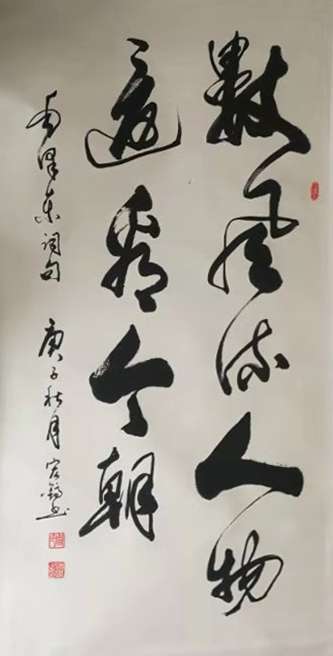 數风流人物
還看今朝
毛泽东词句 庚子秋月